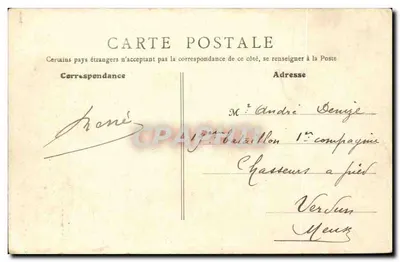 CARTE POSTALE
Certains pays étrangers n'acceptant pas la correspondance de ce côté, se renseigner à la Poste
Correspondance
Adresse
Mr André Denize
bataillon 1re compagnie
Chasseurs a pied
Verdun
Meuse